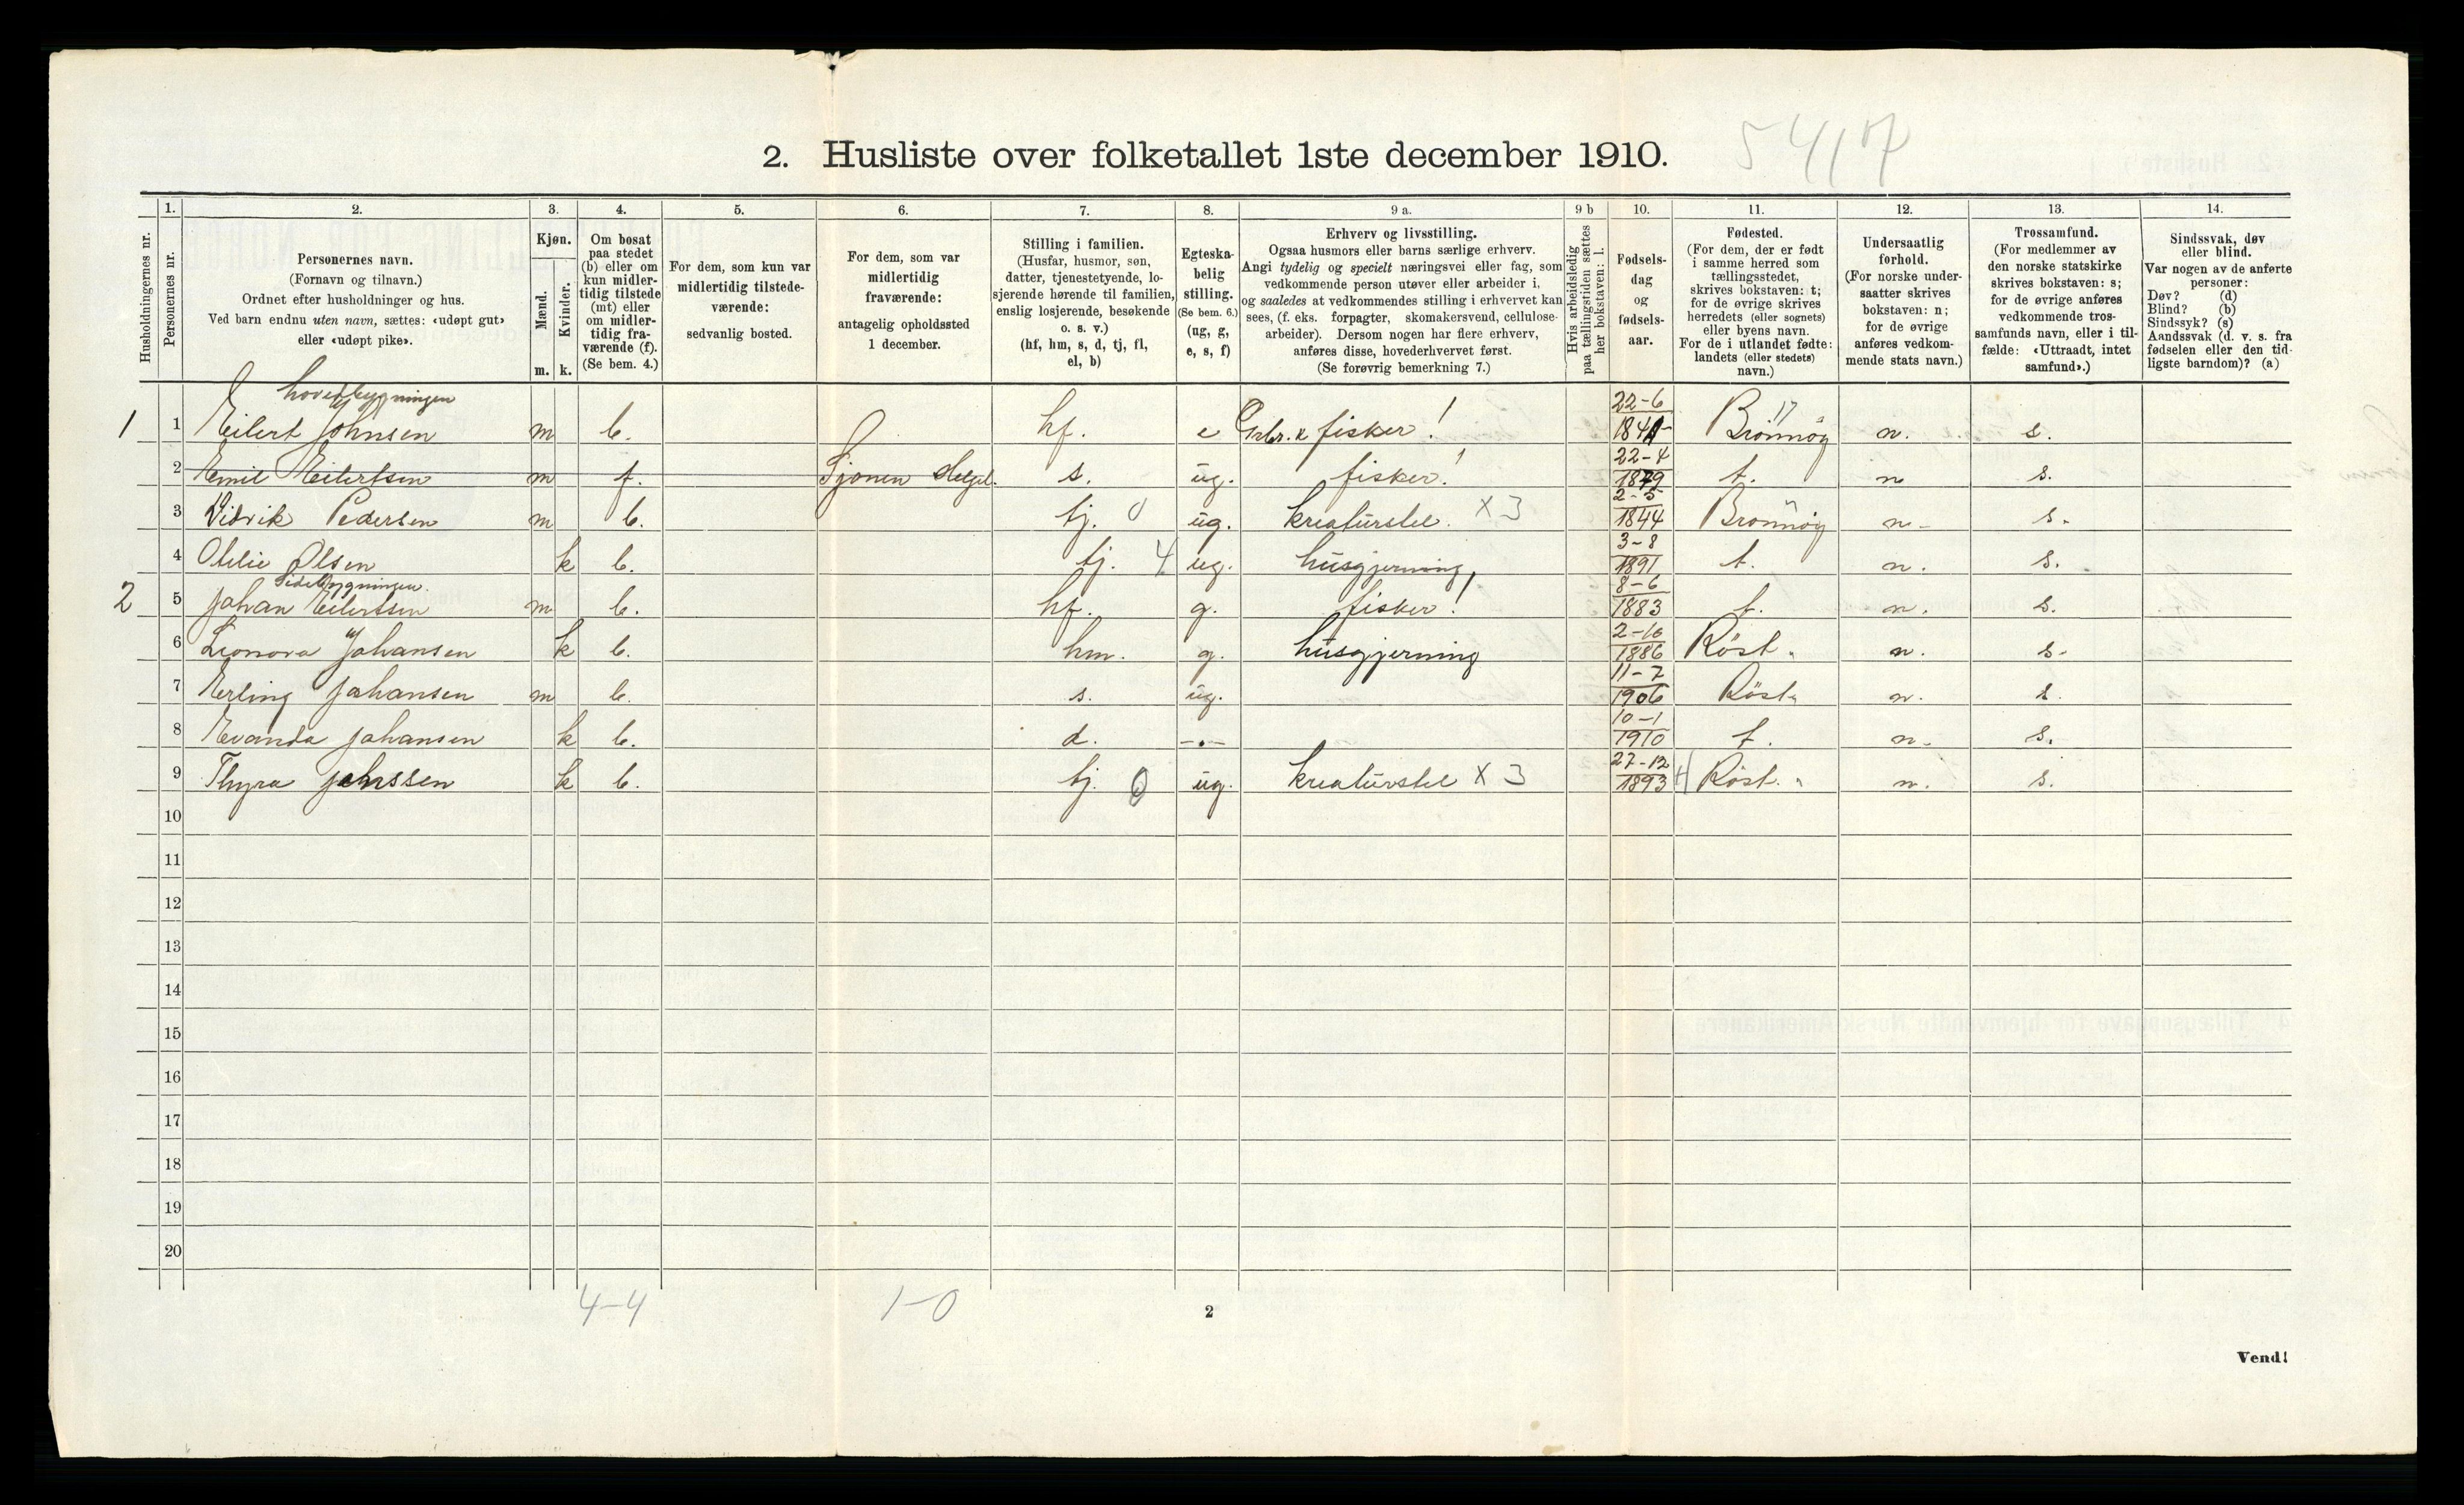 2. Husliste over folketallet 1ste december 1910.
5417
1. 2. 3. 4. 5. 6. 7. 8. 9 a. 9 b 10. 11. 12. 13. 14.
Husholdningernes nr.
Personernes nr.
Personernes navn.
(Fornavn og tilnavn.)
Ordnet efter husholdninger og hus.
Ved barn endnu uten navn, sættes: «udøpt gut»
eller «udøpt pike».
Kjøn.
Mænd.
Kvinder.
m. k.
Om bosat
paa stedet
(b) eller om
kun midler-
tidig tilstede
(mt) eller
om midler-
tidig fra-
værende (f).
(Se bem. 4.)
For dem, som kun var
midlertidig tilstede-
værende:
sedvanlig bosted.
For dem, som var
midlertidig
fraværende:
antagelig opholdssted
1 december.
Stilling i familien.
(Husfar, husmor, søn,
datter, tjenestetyende, lo-
sjerende hørende til familien,
enslig losjerende, besøkende
o. s. v.)
(hf, hm, s, d, tj, fl,
el, b)
Egteska-
belig
stilling.
(Se bem. 6.)
(ug, g,
e, s, f)
Erhverv og livsstilling.
Ogsaa husmors eller barns særlige erhverv.
Angi tydelig og specielt næringsvei eller fag, som
vedkommende person utøver eller arbeider i,
og saaledes at vedkommendes stilling i erhvervet kan
sees, (f. eks. forpagter, skomakersvend, cellulose-
arbeider). Dersom nogen har flere erhverv,
anføres disse, hovederhvervet først.
(Se forøvrig bemerkning 7.)
Hvis arbeidsledig
paa tællingstiden sættes
her bokstaven: l.
Fødsels-
dag
og
fødsels-
aar.
Fødested.
(For dem, der er født
i samme herred som
tællingsstedet,
skrives bokstaven: t;
for de øvrige skrives
herredets (eller sognets)
eller byens navn.
For de i utlandet fødte:
landets (eller stedets)
navn.)
Undersaatlig
forhold.
(For norske under-
saatter skrives
bokstaven: n;
for de øvrige
anføres vedkom-
mende stats navn.)
Trossamfund.
(For medlemmer av
den norske statskirke
skrives bokstaven: s;
for de øvrige anføres
vedkommende tros-
samfunds navn, eller i til-
fælde: «Uttraadt, intet
samfund».)
Sindssvak, døv
eller blind.
Var nogen av de anførte
personer:
Døv? (d)
Blind? (b)
Sindssyk? (s)
Aandssvak (d. v. s. fra
fødselen eller den tid-
ligste barndom)? (a)
hovedbygningen
1 1 Eilert Johnsen m b. hf. e Grbr. & fisker! 22-6 1841 Brønnøy 17 n. s.
2 Emil Eilertsen m f. Sjonen Helgel. s. ug. fisker! 22-4 1879 t. n s.
3 Vidrik Pedersen m b. tj. 0 ug. kreaturstel. x 3 2-5 1844 Brønnøy n. s.
4 Otelie Olsen k b. tj. 4 ug. husgjerning 3-8 1891 t. n. s.
Sidebygningen.
2 5 Johan Eilertsen m b. hf. g. fisker! 8-6 1883 t. n. s.
6 Leonora Johansen k b. hm. g. husgjerning 2-10 1886 Röst n. s.
7 Erling Johansen m b. s. ug. 11-7 1906 Röst n. s.
8 Evanda Johansen k b. d. -"- 10-1 1910 t. n. s.
9 Thyra Johnssen k b. tj. 0 ug. kreaturstel x 3 27-12 1893 Röst. n. s.
10
11
12
13
14
15
16
17
18
19
20
4-4 1-0
2
Vend!